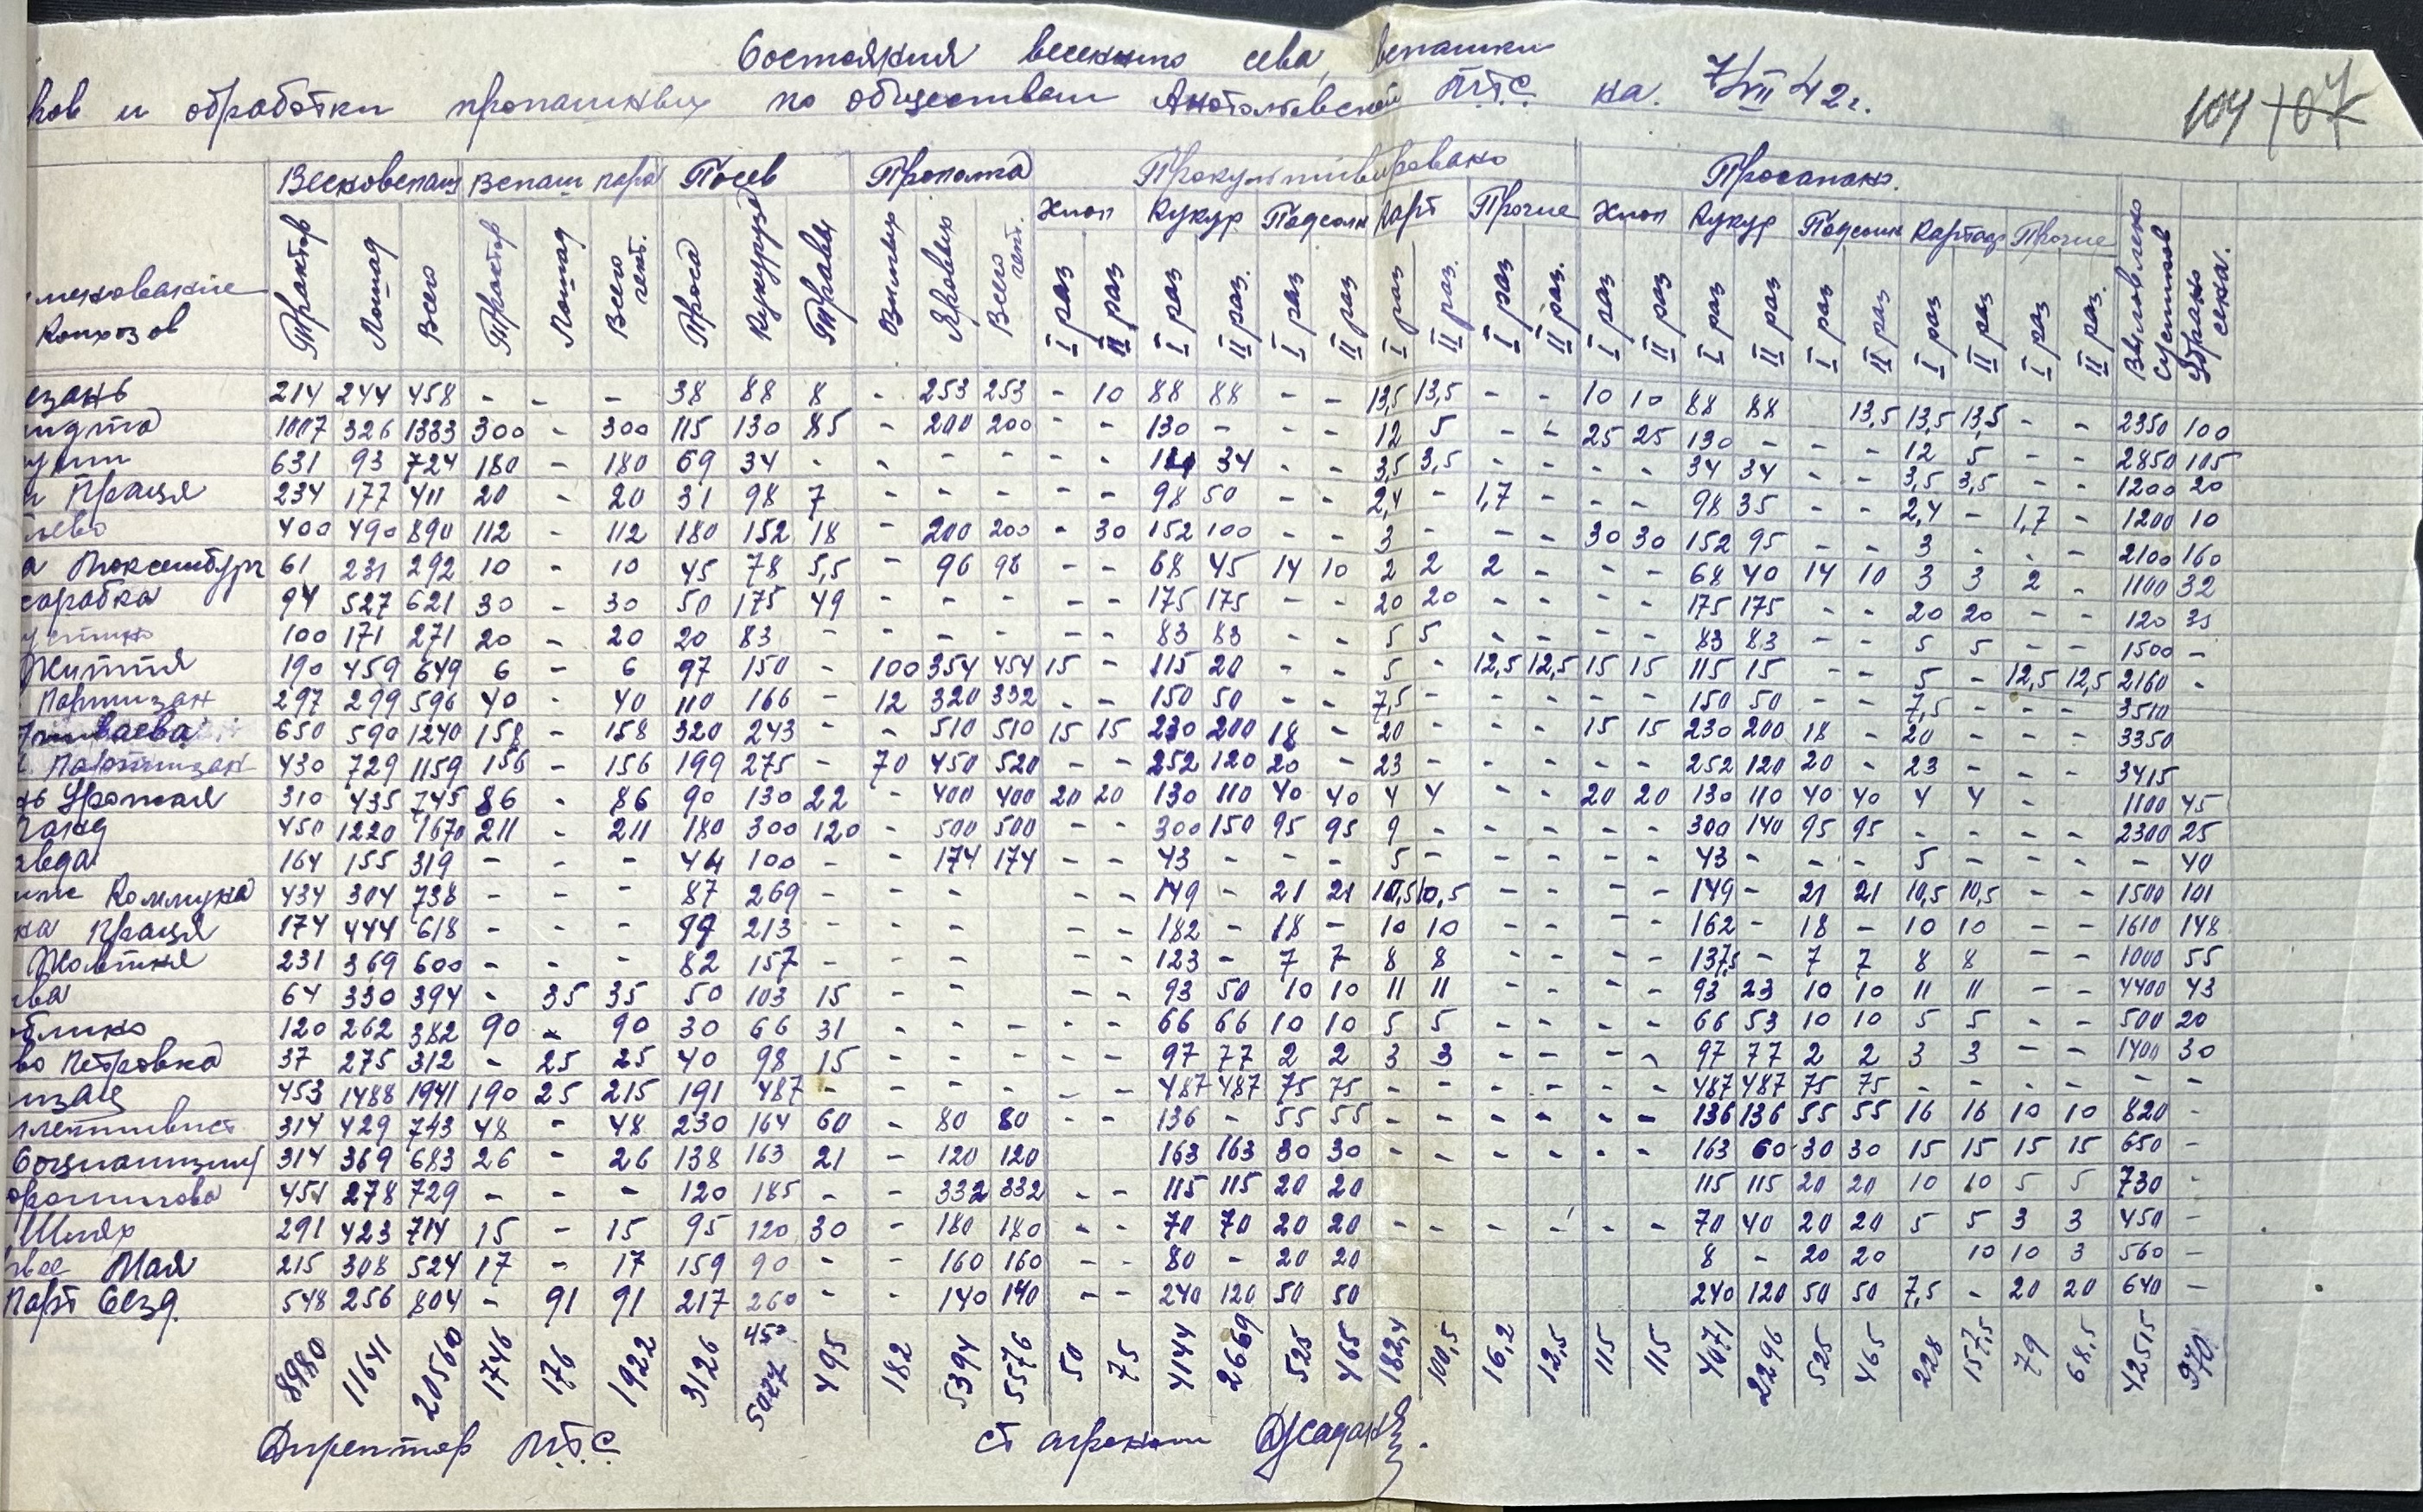 Состояния весеннего сева, вспашки
ров и обработки пропашных по обществам Анатольевской М.Т.С. на 7/VII 42 г.
104 107
Весновспаш Вспаш пара Посев Прополка Прокультивировано Просапано.
Хлоп Кукур Подсолн Карт Прочие Хлоп Кукур Подсолн Картоф Прочие
менование Колхозов Трактор Лошад Всего Трактор Лошад Всего гект. Проса Кукурузы Травы Озимых Яровых Всего гект. I раз II раз I раз II раз. I раз II раз I раз II раз. I раз II раз. I раз II раз I раз II раз I раз II раз I раз II раз I раз II раз. Выловлено сусликов Убрано сена.
214 244 458 - - - 38 88 8 - 253 253 - 10 88 88 - - 13,5 13,5 - - 10 10 88 88 13,5 13,5 13,5 - - 2350 100
1007 326 1333 300 - 300 115 130 85 - 200 200 - - 130 - - - 12 5 - - 25 25 130 - - - 12 5 - - 2850 105
631 93 724 180 - 180 69 34 - - - - - - 34 - - 3,5 3,5 - - - - 34 34 - - 3,5 3,5 - - 1200 20
Праця 234 177 411 20 - 20 31 98 7 - - - - - 98 50 - - 2,4 - 1,7 - - - 98 35 - - 2,4 - 1,7 - 1200 10
лево 400 490 890 112 - 112 180 152 18 - 200 200 - 30 152 100 - - 3 - - - 30 30 152 95 - - 3 - - - 2100 160
а Люксембург 61 231 292 10 - 10 45 78 5,5 - 96 96 - - 68 45 14 10 2 2 2 - - - 68 40 14 10 3 3 2 - 1100 32
сарабка 94 527 621 30 - 30 50 175 49 - - - - - 175 175 - - 20 20 - - - - 175 175 - - 20 20 - - 120 35
100 171 271 20 - 20 20 83 - - - - - - 83 83 - - 5 5 - - - - 83 83 - - 5 5 - - 1500 -
Життя 190 459 649 6 - 6 97 150 - 100 354 454 15 - 115 20 - - 5 - 12,5 12,5 15 15 115 15 - - 5 - 12,5 12,5 2160 -
Партизан 297 299 596 40 - 40 110 166 - 12 320 332 - - 150 50 - - 7,5 - - - - - 150 50 - - 7,5 - - - 3510
ваева 650 590 1240 158 - 158 320 243 - - 510 510 15 15 230 200 18 - 20 - - - 15 15 230 200 18 - 20 - - - 3350
Партизан 430 729 1159 156 - 156 199 275 - 70 450 520 - - 252 120 20 - 23 - - - - - 252 120 20 - 23 - - - 3415
Урожая 310 435 745 86 - 86 90 130 22 - 400 400 20 20 130 110 40 40 4 4 - - 20 20 130 110 40 40 4 4 - 1100 45
450 1220 1670 211 - 211 180 300 120 - 500 500 - - 300 150 95 95 9 - - - - - 300 140 95 95 - - - - 2300 25
авда 164 155 319 - - - 44 100 - - 174 174 - - 43 - - - 5 - - - - - 43 - - - 5 - - - - 40
Коммуна 434 304 738 - - - 87 269 - - - - - 149 - 21 21 10,5 10,5 - - - - 149 - 21 21 10,5 10,5 - - 1500 101
ка Праця 174 444 618 - - - 99 213 - - - - - 182 - 18 - 10 10 - - - - 162 - 18 - 10 10 - - 1610 148
Жовтня 231 369 600 - - - 82 157 - - - - - 123 - 7 7 8 8 - - - - 137,5 - 7 7 8 8 - - 1000 55
ва 64 330 394 - 35 35 50 103 15 - - - - 93 50 10 10 11 11 - - - - 93 23 10 10 11 11 - - 4400 43
120 262 382 90 - 90 30 66 31 - - - - - 66 66 10 10 5 5 - - - - 66 53 10 10 5 5 - - 500 20
во Петровка 37 275 312 - 25 25 40 98 15 - - - - - 97 77 2 2 3 3 - - - - 97 77 2 2 3 3 - - 1400 30
453 1488 1941 190 25 215 191 487 - - - - - - 487 487 75 75 - - - - - - 487 487 75 75 - - - - - -
314 429 743 48 - 48 230 164 60 - 80 80 - - 136 - 55 55 - - - - - - 136 136 55 55 16 16 10 10 820 -
Социализм 314 369 683 26 - 26 138 163 21 - 120 120 163 163 30 30 - - - - - - 163 60 30 30 15 15 15 15 650 -
орошилова 451 278 729 - - - 120 185 - - 332 332 - - 115 115 20 20 115 115 20 20 10 10 5 5 730 -
Шлях 291 423 714 15 - 15 95 120 30 - 180 180 - - 70 70 20 20 - - - - - - 70 40 20 20 5 5 3 3 450 -
вое Мая 215 308 524 17 - 17 159 90 - - 160 160 - - 80 - 20 20 8 - 20 20 10 10 3 560 -
Парт Сезд. 548 256 804 - 91 91 217 260 - - 140 140 - - 240 120 50 50 240 120 50 50 7,5 - 20 20 640 -
8980 11641 20560 1746 176 1922 3126 450 5027 495 182 5394 5576 50 75 4144 2669 525 465 182,4 100,5 16,2 12,5 115 115 4071 2296 525 465 228 157,5 79 68,5 42515 970.
Директор М.Т.С. ст агроном